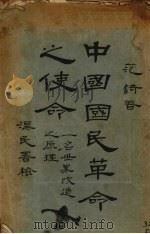 范錡著
中國國民革命
之使命
一名世界改造
之原理
民署檢